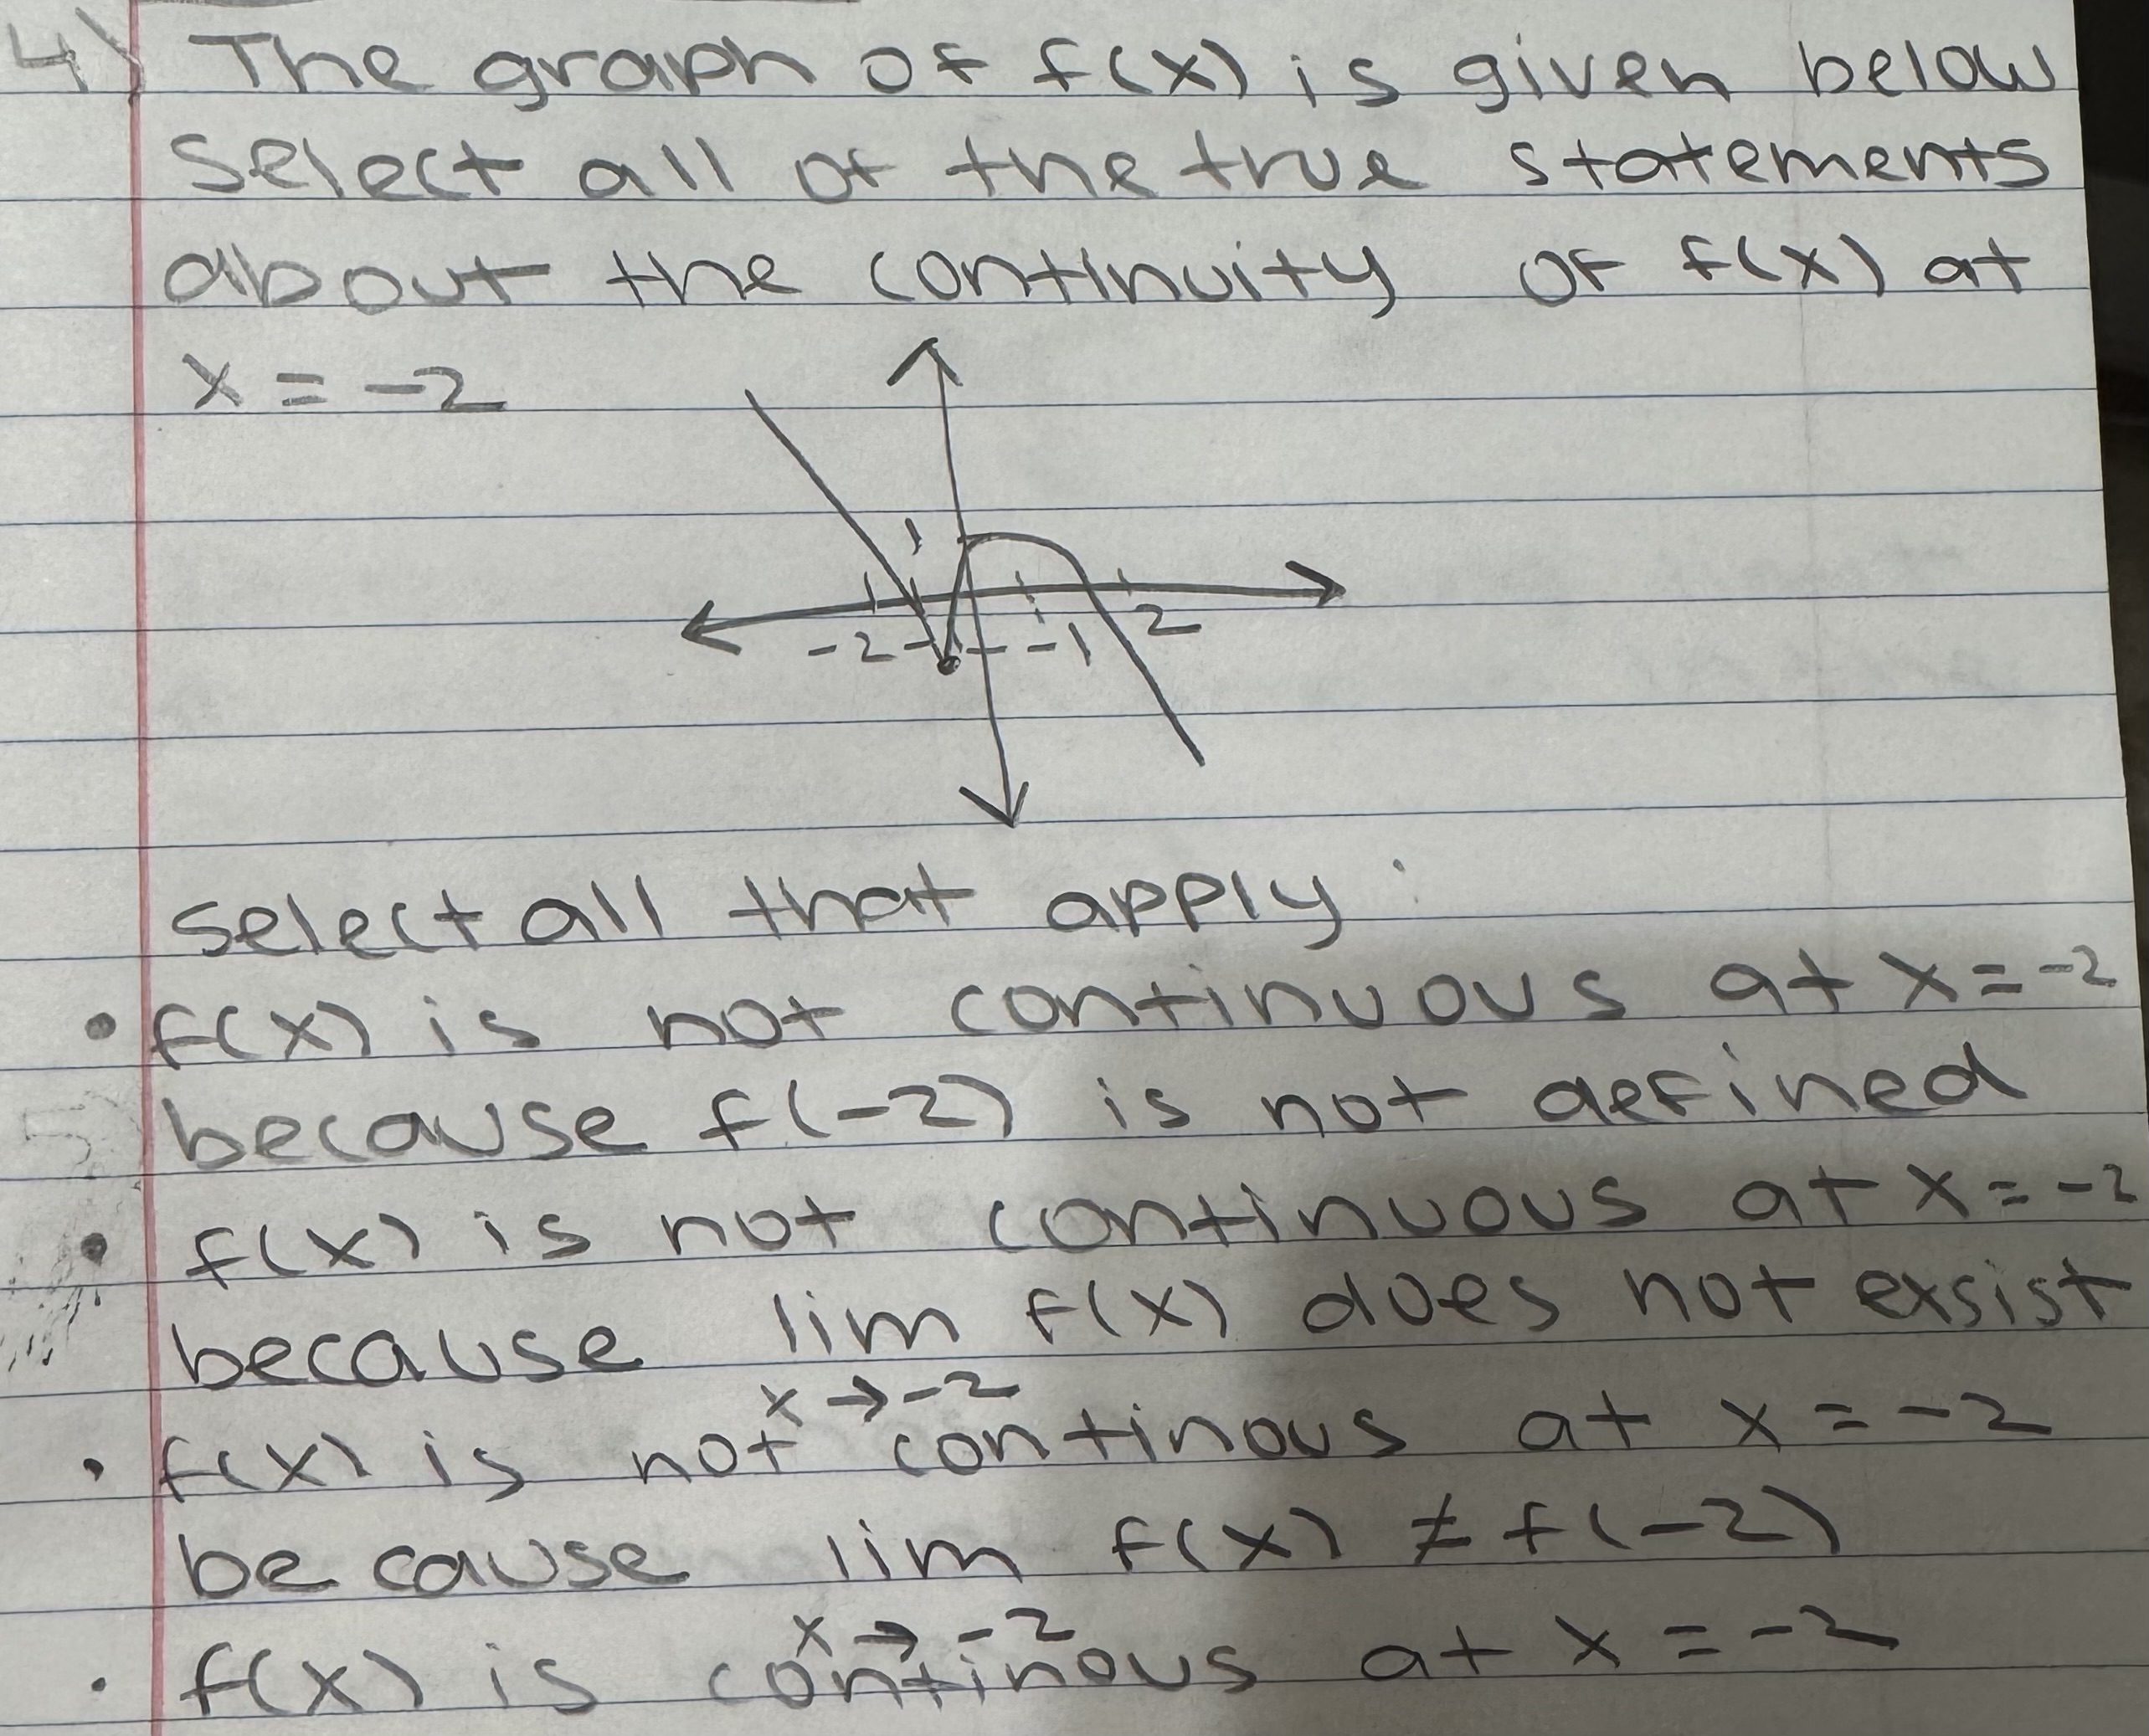 4) The graph of f(x) is given below
Select all of the true statements
about the continuity of f(x) at
x = -2
1
-2
-1
2
select all that apply:
• f(x) is not continuous at x = -2
because f(-2) is not defined
• f(x) is not continuous at x = -2
because lim f(x) does not exsist
x → -2
• f(x) is not continous at x = -2
be cause lim f(x) ≠ f(-2)
x → -2
• f(x) is continous at x = -2